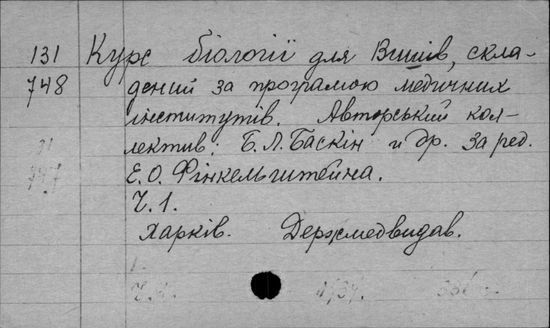 131 Курс біології для Вишів, скла-
748 дений за програмою медичних
інститутів. Авторський кол-
лектив: Б. Л. Баскін и др. За ред.
Е. О. Фінкельштейна.
Ч. 1.
Харків. Держмедвидав.